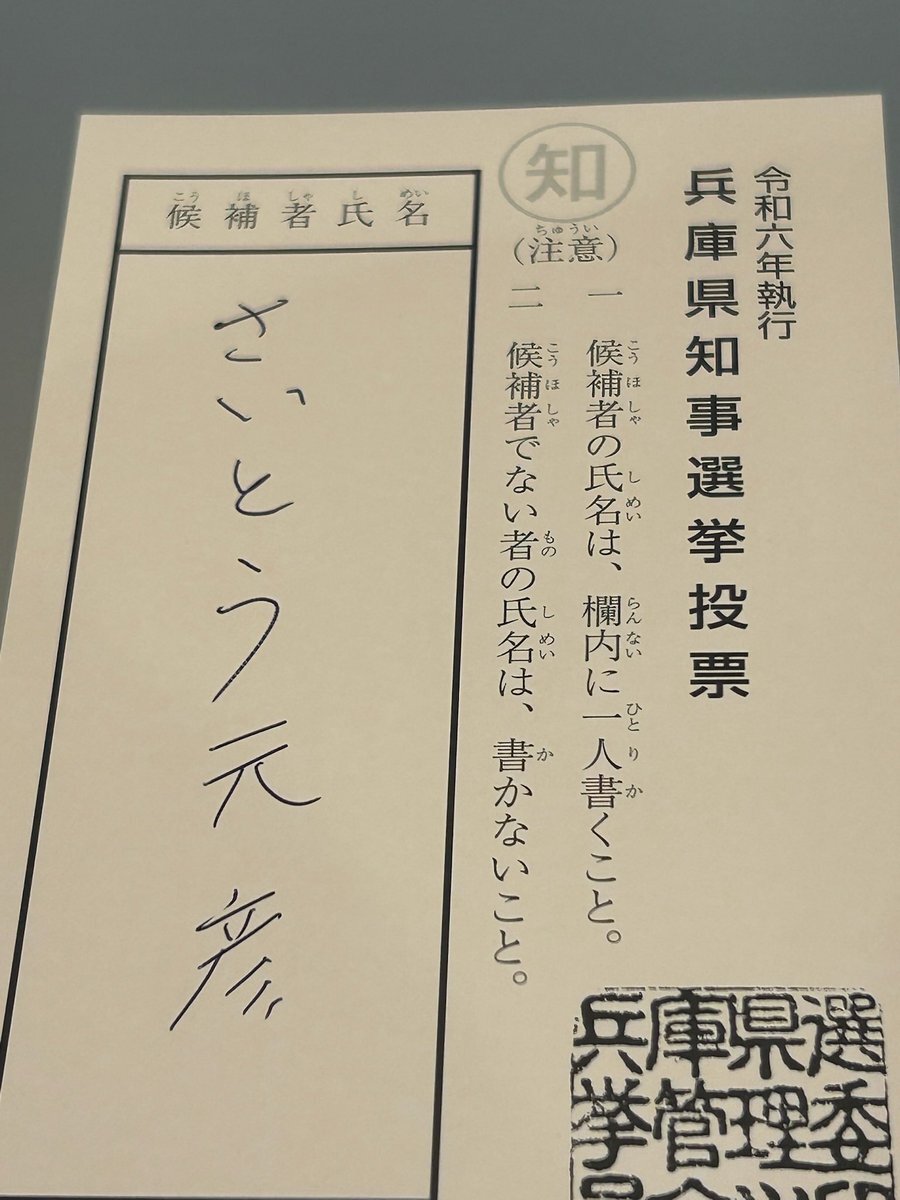 令和六年執行
兵庫県知事選挙投票
知
(注意)
一 候補者の氏名は、欄内に一人書くこと。
二 候補者でない者の氏名は、書かないこと。
候補者氏名
さいとう元彦
兵庫県選
挙管理委